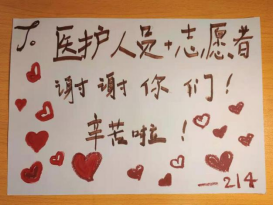 To. 医护人员+志愿者
谢谢你们！
辛苦啦！
—214